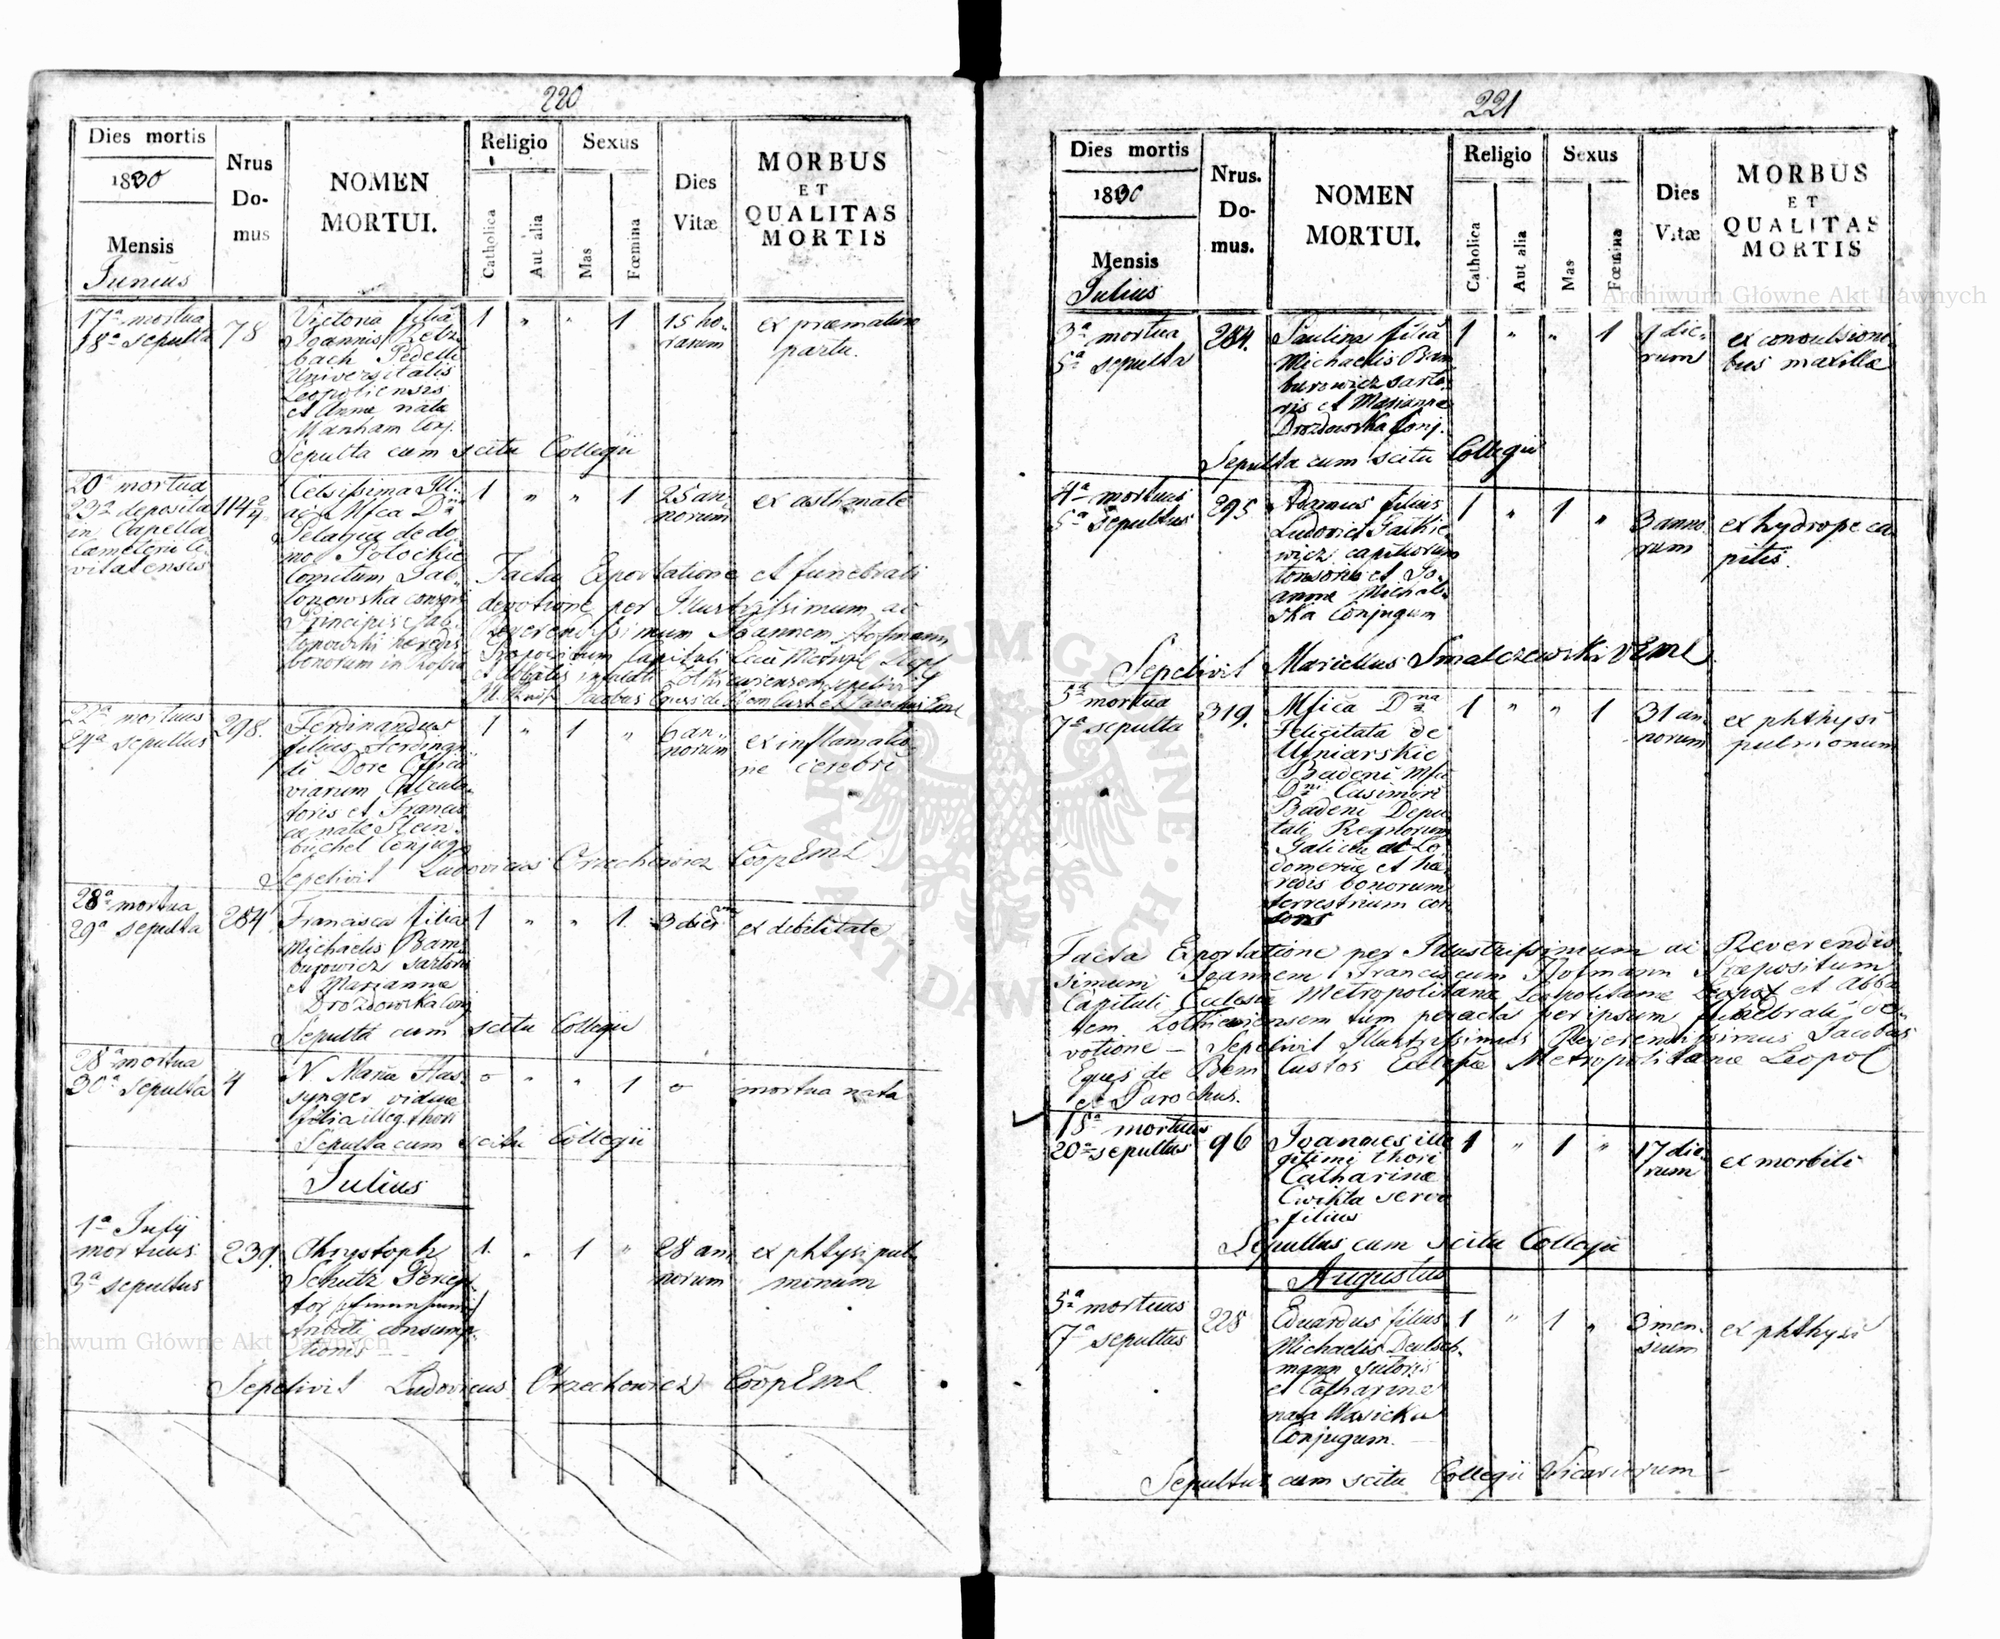 220
Dies mortis
1830
Mensis
Junius
Nrus
Do-
mus
NOMEN
MORTUI.
Religio
Catholica
Aut alia
Sexus
Mas
Fœmina
Dies
Vitæ
MORBUS
ET
QUALITAS
MORTIS
17ª mortua
18ª sepulta
78
Victoria filia
Joannis
bach Pedelli
Universitatis
Leopoliensis
et Annæ natæ
Manham Conj.
1 " " 1
15 ho-
rarum
ex præmaturo
partu.
Sepulta cum scitu Collegii
20ª mortua
23ª deposita
in Capella
Cæmeterii Ci-
vitatensis
114 2/4
Celsissima Ill
ac Mfca Dna
Pelagia de do-
mo Potockie
Comitum Jab-
lonowska consors
Principis Jab-
lonowski heredis
bonorum in
1 " " 1
25 an-
norum
ex asthmate
Facta Exportatione et funebrali
devotione per Illustrissimum ac
Reverendissimum Joannem Hofmann
Præpositum Capituli
et Abbatis Zolkieviensem sepelivit
Jacobus Eques de Bem Cust et Parochus
22ª mortuus
24ª sepultus
298.
Ferdinandus
filius Ferdinan-
di Dore Offici
viarum Calcula-
toris et Francis-
cæ natæ Stein-
büchel Conjugu
1 " 1 "
6 an-
norum
ex inflamatio-
ne cerebri
Sepelivit Ludovicus Orzechowicz CoopEml
28ª mortua
29ª sepulta
284
Francisca filia
Michaelis Bam-
burowicz sartoris
et Mariannæ
Drozdowska Conj
1 " " 1.
3 dier
ex debilitate
Sepulta cum scitu Collegii
28ª mortua
30ª sepulta
4
N. Mariæ Has-
synger viduæ
filia illeg. thori
o " " 1
o
mortua nata
Sepulta cum scitu Collegii
Julius
1ª Julij
mortuus
3ª sepultus
239.
Chrystoph
Schutz
tor
tributi consump-
tionis
1. " 1 "
28 an-
norum
ex phtysi pul-
monum
Sepelivit Ludovicus Orzechowicz CoopEml.
221
Dies mortis
1830
Mensis
Julius
Nrus.
Do-
mus.
NOMEN
MORTUI.
Religio
Catholica
Aut alia
Sexus
Mas
Fœmina
Dies
Vitæ
MORBUS
ET
QUALITAS
MORTIS
3ª mortua
5ª sepulta
284.
Paulina filia
Michaelis Bam
burowicz sarto-
ris et Mariannæ
Drozdowska Conj.
1 " " 1
9 die-
rum
ex convulsioni-
bus maxillæ
Sepulta cum scitu Collegii
4ª mortuus
5ª sepultus
295
Adamus filius
Ludovici Gaskie-
wicz capillorum
tonsoris et Jo-
annæ Michal-
ska Conjugum
1 " 1 "
3 anno
rum
ex hydrope ca-
pitis.
Sepelivit Maricllus Smalczewski VEml
5ª mortua
7ª sepulta
319.
Mfica Dna
Felicitata de
Uzniarskie
Badeni Mfci
Dni Casimiri
Badeni Depu-
tati Regnorum
Galiciæ et Lo-
domeriæ et hæ-
redis bonorum
terrestrium con
sors
1 " " 1
31 an-
norum
ex phthysi
pulmonum
Facta Exportatione per Illustrissimum ac Reverendis-
simum Joannem Franciscum Hofmann Præpositum
Capituli Ecclesiæ Metropolitanæ Leopolitanæ et Abba-
tem Zolkieviensem tum peracta per ipsum funebrali de-
votione – Sepelivit Illustrissimus Reverendissimus Jacobus
Eques de Bem Custos Ecclesiæ Metropolitanæ Leopol
et Parochus.
15ª mortuus
20ª sepultus
96
Joannes ille
gitimi thori
Catharinæ
Cwikta servæ
filius
1 " 1 "
17 die-
rum
ex morbili
Sepultus cum scitu Collegii
Augustus
5ª mortuus
7ª sepultus
228
Eduardus filius
Michaelis Deutsch-
mann sutoris
et Catharinæ
nata Wasicka
Conjugum.
1 " 1 "
3 men-
sium
ex phthysi
Sepultus cum scitu Collegii Vicariorum
Archiwum Główne Akt Dawnych
Archiwum Główne Akt Dawnych
ARCHIWUM GŁÓWNE AKT DAWNYCH